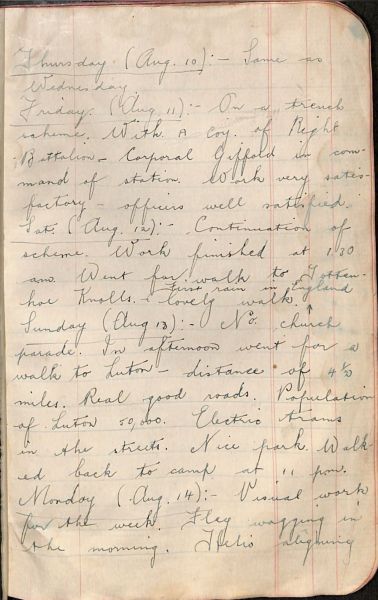 Thursday (Aug. 10):- Same as
Wednesday.
Friday. (Aug. 11):- On a trench
scheme. With A Coy. of Right
Battalion - Corporal Gifford in com-
mand of station. Work very satis-
factory - officers well satisfied.
Sat. (Aug. 12):- Continuation of
scheme. Work finished at 1.30
am. Went for walk to Totten-
hoe Knolls. - lovely walk. First rain in England
Sunday (Aug 13):- No church
parade. In afternoon went for a
walk to Luton - distance of 4 1/2
miles. Real good roads. Population
of Luton 50,000. Electric trams
in the streets. Nice park. Walk-
ed back to camp at 11 p.m.
Monday (Aug. 14):- Visual work
for the week. Flag wagging in
the morning. Helio aligning